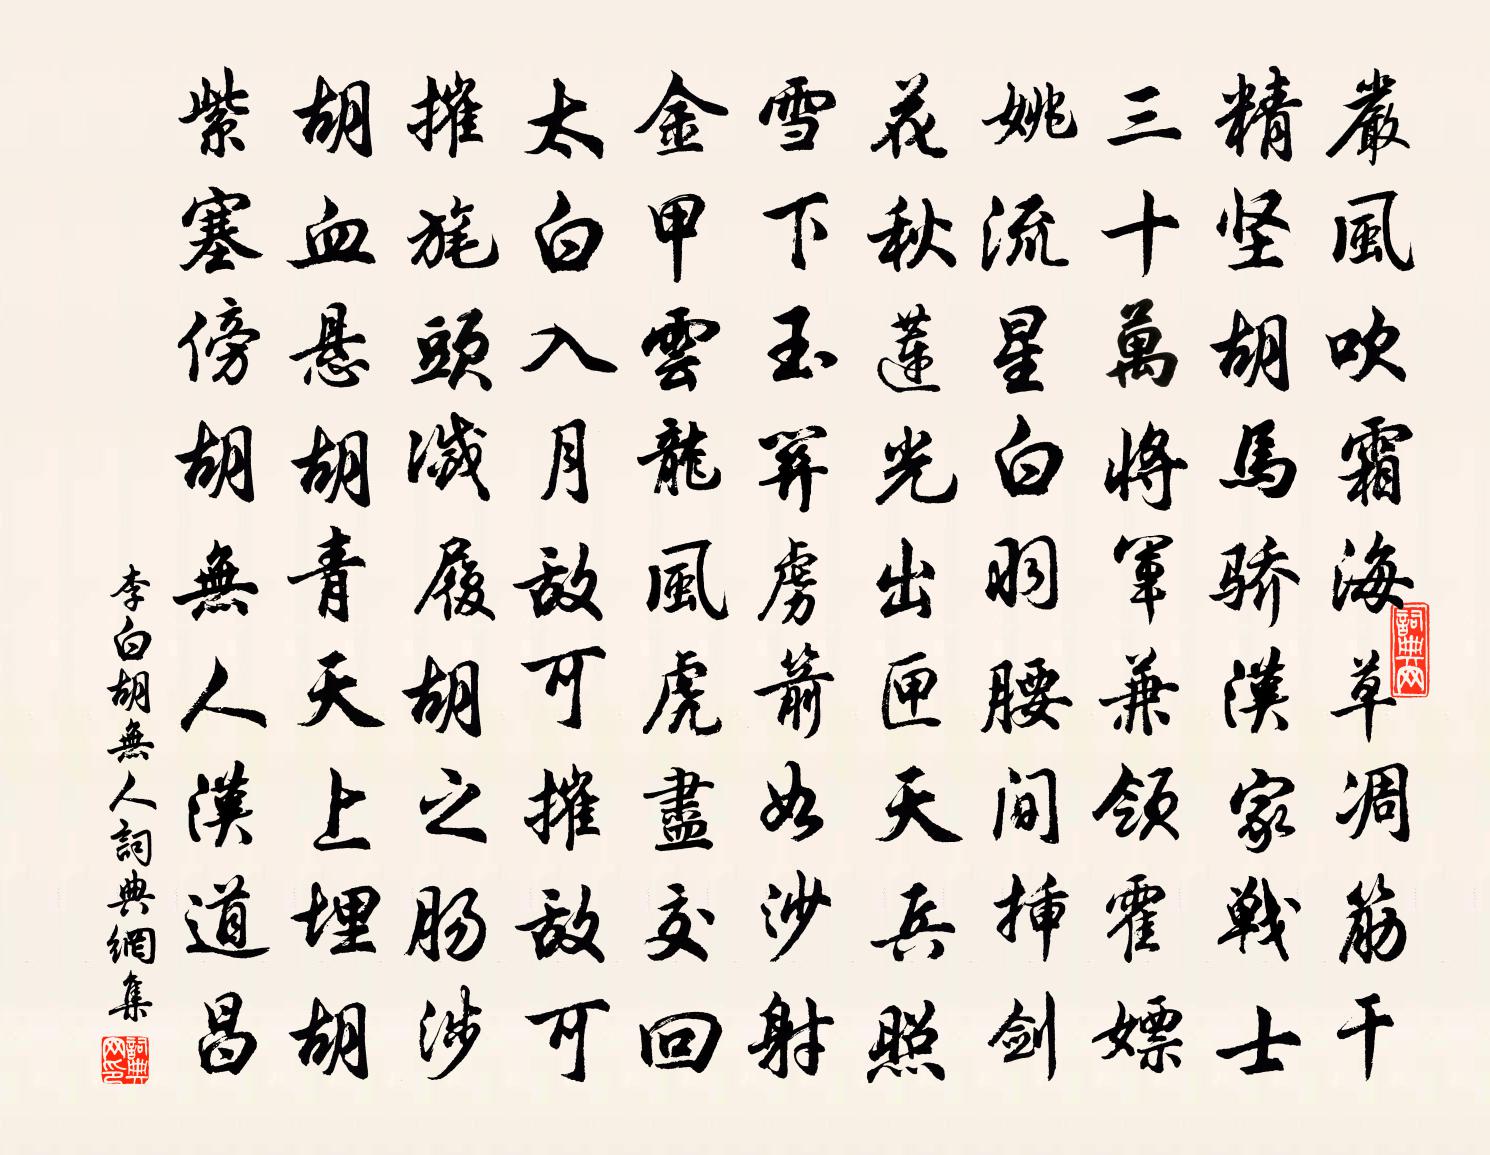 嚴風吹霜海草凋筋干
精坚胡馬骄漢家戦士
三十萬將軍兼領霍嫖
姚流星白羽腰间揷剑
花秋蓮光出匣天兵照
雪下玉関虜箭如沙射
金甲雲龍風虎盡交回
太白入月敌可摧敌可
摧旄頭滅履胡之肠涉
胡血悬胡青天上埋胡
紫塞傍胡無人漢道昌
李白胡無人詞典網集
詞典网
詞典网印